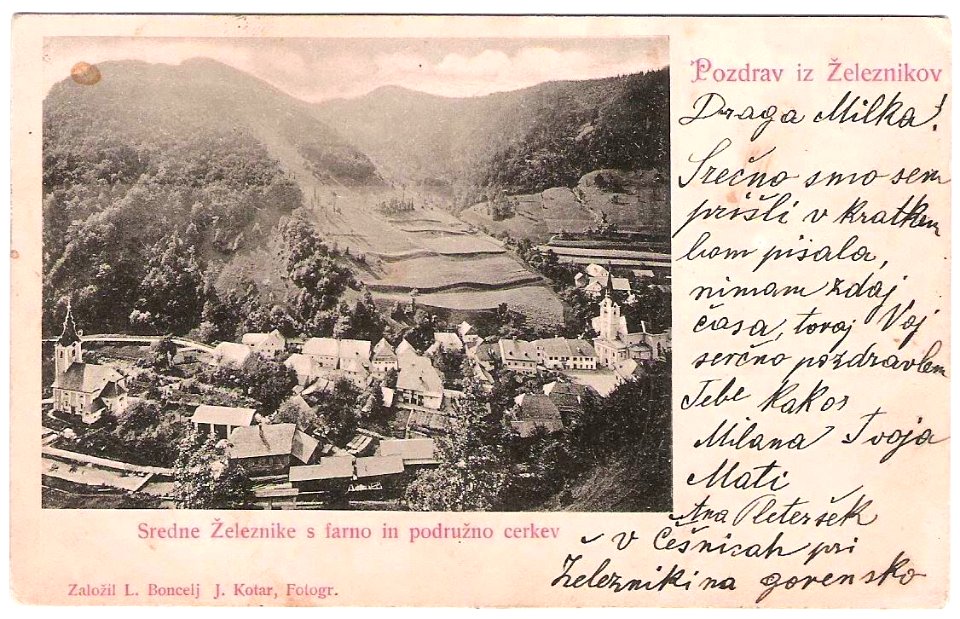 Pozdrav iz Železnikov
Draga Milka!
Srečno smo sem
prišli v kratkem
bom pisala,
nimam zdaj
časa, toraj Voj
serčno pozdravlem
Tebe kakos
Milana Tvoja
Mati
Ana Peteršek
v Češnicah pri
Železnikina gorensko
Sredne Železnike s farno in podružno cerkev
Založil L. Boncelj J. Kotar, Fotogr.